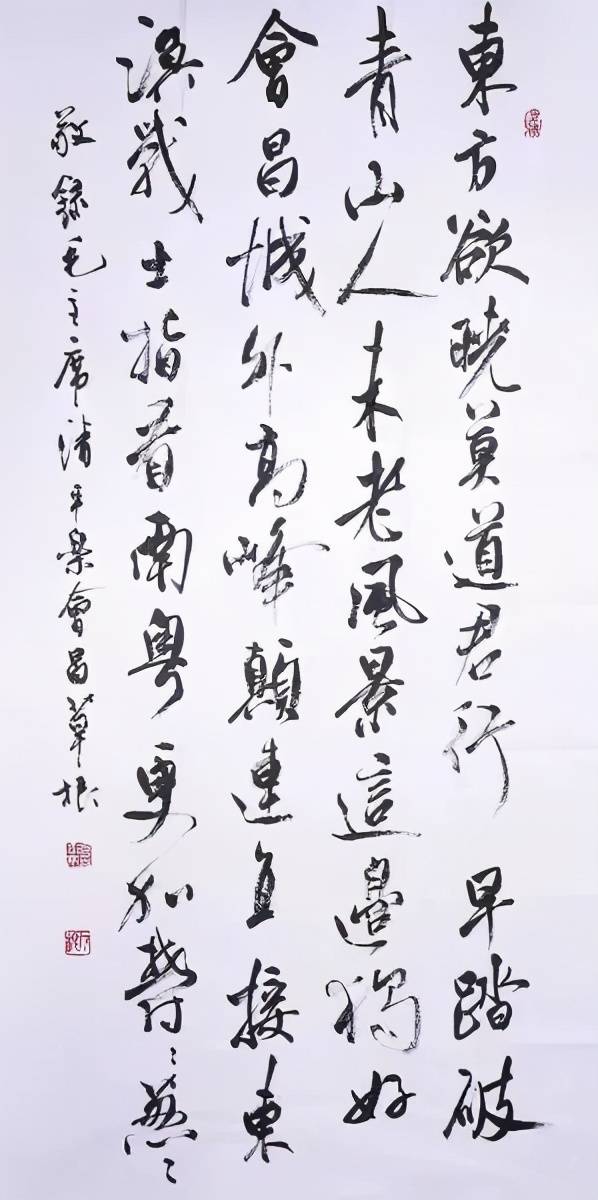 東方欲曉莫道君行早踏破
青山人未老風景這邊獨好
會昌城外高峰顛連直接東
溟戰士指看南粵更加鬱〻葱〻
敬錄毛主席清平樂會昌草根